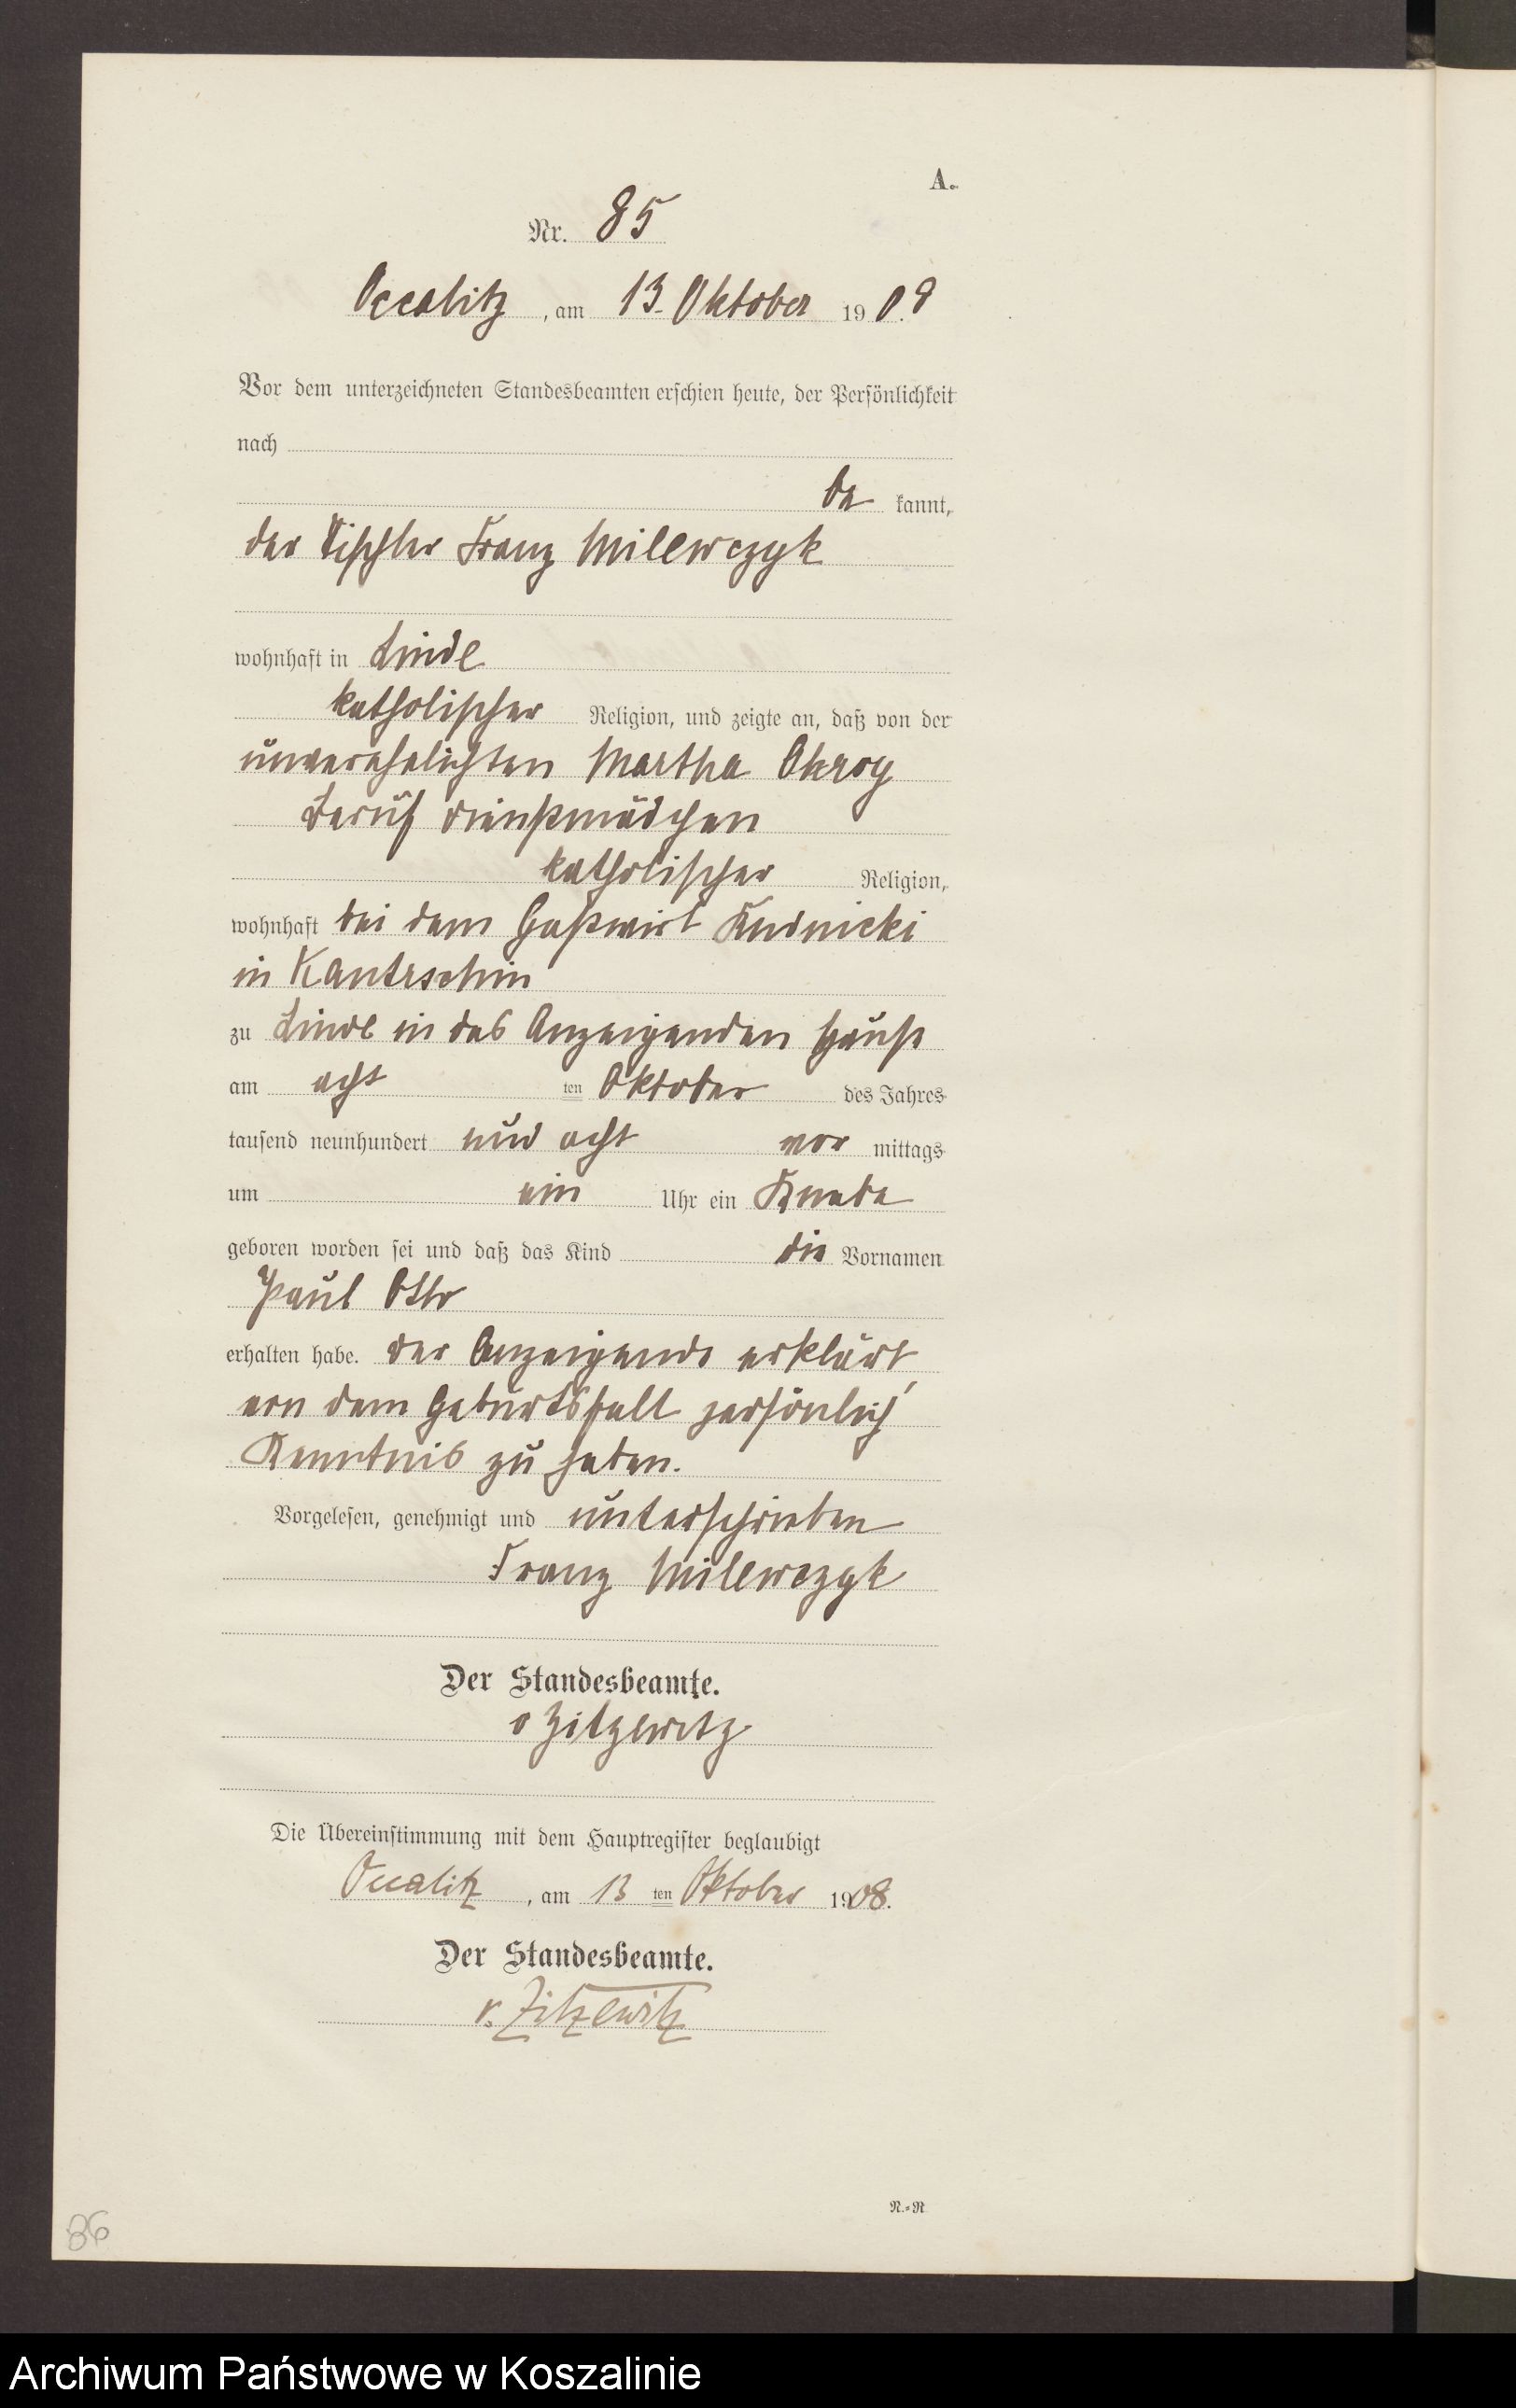 A.
Nr. 85
Occalitz, am 13. Oktober 1908
Vor dem unterzeichneten Standesbeamten erschien heute, der Persönlichkeit
nach
be kannt,
der Tischler Franz Milewczyk
wohnhaft in Linde
katholischer Religion, und zeigte an, daß von der
unverehelichten Martha Okrog
Beruf Dienstmädchen
katholischer Religion,
wohnhaft bei dem Gastwirt
in Kantrschin
zu Linde in des Anzeigenden Hause
am acht ten Oktober des Jahres
tausend neunhundert und acht vor mittags
um ein Uhr ein Knabe
geboren worden sei und daß das Kind die Vornamen
Paul Otto
erhalten habe. Der Anzeigende erklärt,
von dem Geburtsfall persönlich
Kenntnis zu haben.
Vorgelesen, genehmigt und unterschrieben
Franz Milewczyk
Der Standesbeamte.
v Zitzewitz
Die Übereinstimmung mit dem Hauptregister beglaubigt
Occalitz, am 13 ten Oktober 1908.
Der Standesbeamte.
v. Zitzewitz
N.=R
86
Archiwum Państwowe w Koszalinie